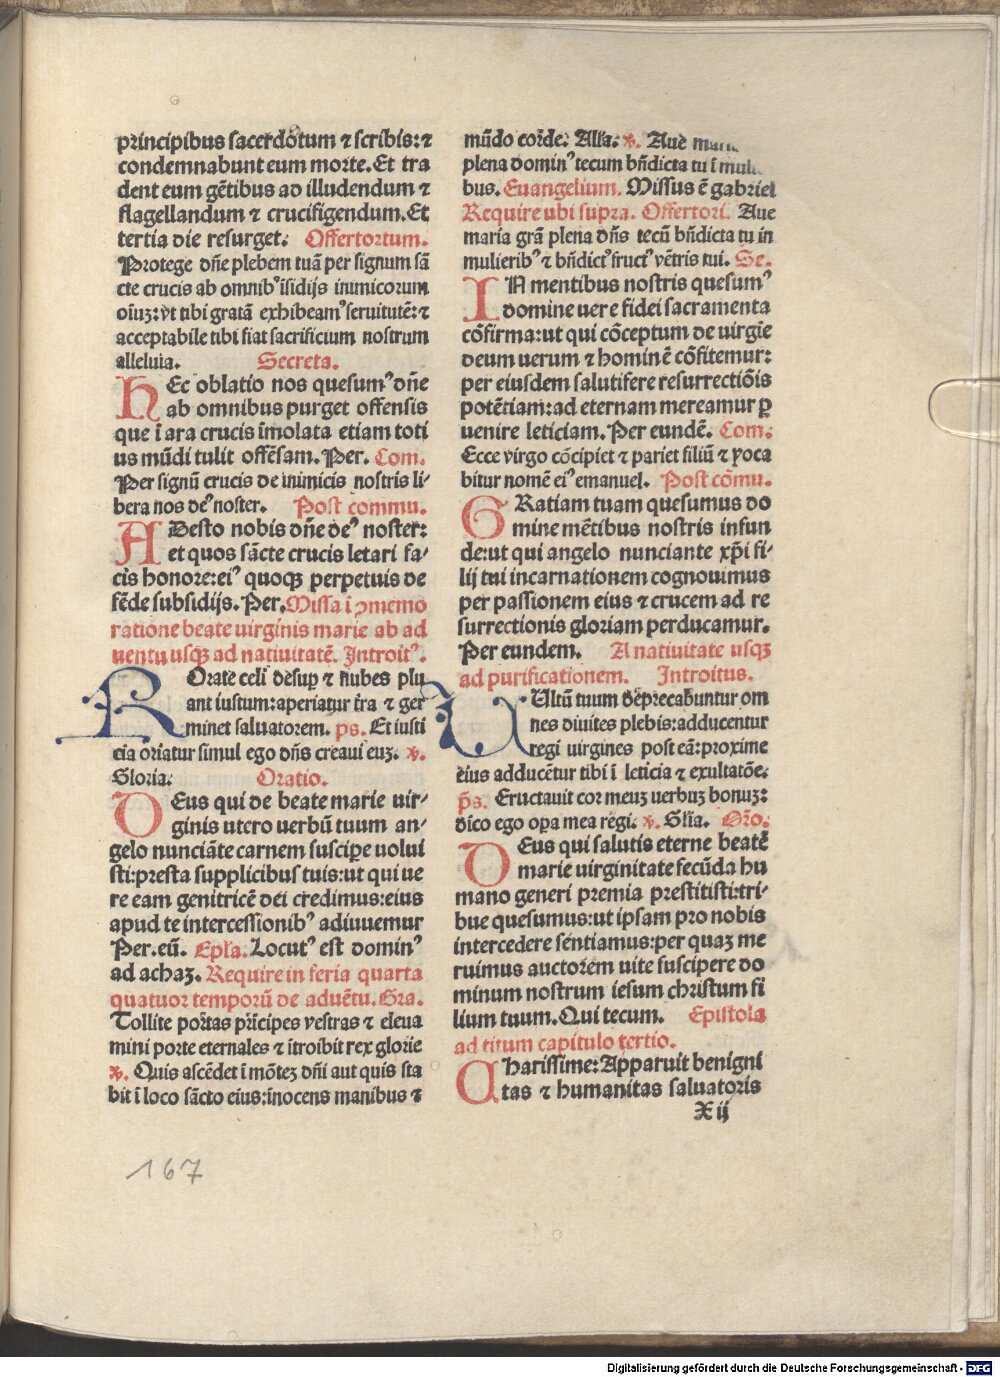 principibus sacerdotum ⁊ scribis: ⁊
condemnabunt eum morte. Et tra
dent eum gētibus ad illudendum ⁊
flagellandum ⁊ crucifigendum. Et
tertia die resurget. Offertorium.
Protege dñe plebem tuā per signum sā
cte crucis ab omnibꝰ īsidijs inimicorum
oīuꝫ: vt tibi gratā exhibeamꝰ seruitutē: ⁊
acceptabile tibi fiat sacrificium nostrum
alleluia. Secreta.
HEc oblatio nos quesumꝰ dñe
ab omnibus purget offensis
que ī ara crucis īmolata etiam toti
us mūdi tulit offēsam. Per. Com.
Per signū crucis de inimicis nostris li⸗
bera nos deꝰ noster. Post commu.
ADesto nobis dñe deꝰ noster:
et quos sācte crucis letari fa⸗
cis honore: eiꝰ quoqꝫ perpetuis de
fēde subsidijs. Per. Missa ī ꝯmemo
ratione beate uirginis marie ab ad
uentu usqꝫ ad natiuitatē. Introitꝰ.
ROrate celi desuꝑ ⁊ nubes plu
ant iustum: aperiatur t̄ra ⁊ ger
minet saluatorem. ps. Et iusti
cia oriatur simul ego dñs creaui euꝫ. ℣.
Gloria. Oratio.
DEus qui de beate marie uir⸗
ginis utero uerbū tuum an⸗
gelo nunciāte carnem suscipe uolui
sti: presta supplicibus tuis: ut qui ue
re eam genitricē dei credimus: eius
apud te intercessionibꝰ adiuuemur
Per. eū. Epl̄a. Locutꝰ est dominꝰ
ad achaꝫ. Require in feria quarta
quatuor temporū de aduētu. Gra.
Tollite portas prīcipes vestras ⁊ eleua
mini porte eternales ⁊ ītroibit rex glorie
℣. Quis ascēdet ī mōteꝫ dñi aut quis sta
bit ī loco sācto eius: īnocens manibus ⁊
mūdo corde. Alla. ℣. Aue
plena dominꝰ tecum bñdicta tu ī
bus. Euangelium. Missus ē gabriel
Require ubi supra. Offertori. Aue
maria grā plena dñs tecū bñdicta tu in
mulieribꝰ ⁊ bñdictꝰ fructꝰ vētris tui. Se.
IN mentibus nostris quesumꝰ
domine uere fidei sacramenta
cōfirma: ut qui cōceptum de uirgīe
deum uerum ⁊ hominē cōfitemur:
per eiusdem salutifere resurrectiōis
potētiam: ad eternam mereamur ꝑ
uenire leticiam. Per eundē. Com.
Ecce virgo cōcipiet ⁊ pariet filiū ⁊ voca
bitur nomē eiꝰ emanuel. Post cōmu.
GRatiam tuam quesumus do
mine mētibus nostris infun
de: ut qui angelo nunciante xp̄i fi⸗
lij tui incarnationem cognouimus
per passionem eius ⁊ crucem ad re
surrectionis gloriam perducamur.
Per eundem. A natiuitate usqꝫ
ad purificationem. Introitus.
VUltū tuum deprecabuntur om
nes diuites plebis: adducentur
regi uirgines post eā: proxime
eius adducētur tibi ī leticia ⁊ exultatōe.
p̄s. Eructauit cor meuꝫ uerbuꝫ bonuꝫ:
dico ego oꝑa mea regi. ℣. Gl̄ia. Oro.
DEus qui salutis eterne beate
marie uirginitate fecūda hu
mano generi premia prestitisti: tri⸗
bue quesumus: ut ipsam pro nobis
intercedere sentiamus: per quaꝫ me
ruimus auctorem uite suscipere do
minum nostrum iesum christum fi
lium tuum. Qui tecum. Epistola
ad titum capitulo tertio.
CHarissime: Apparuit benigni
tas ⁊ humanitas saluatoris
X ij
167
Digitalisierung gefördert durch die Deutsche Forschungsgemeinschaft - DFG